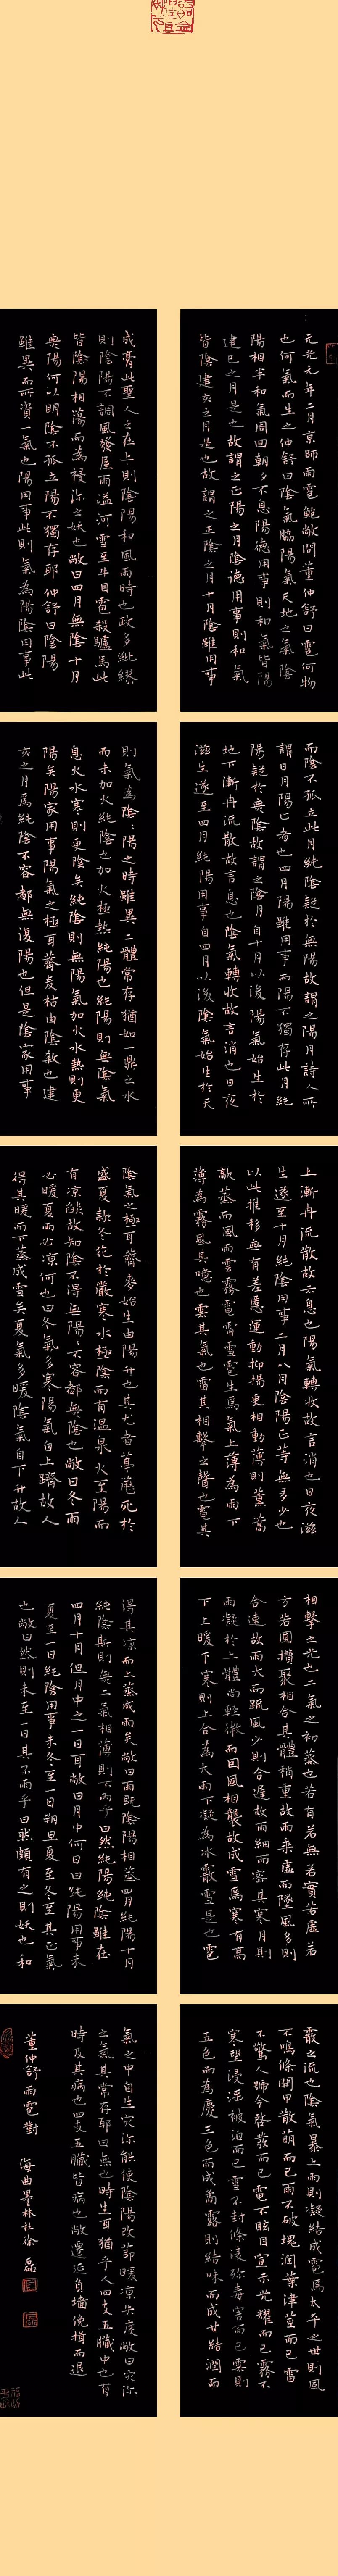 元光元年二月京師雨雹鮑敞問董仲舒曰雹何物
也何氣而生之仲舒曰陰氣脇陽氣天地之氣陰
陽相半和氣周回朝夕不息陽德用事則和氣皆陽
建巳之月是也故謂之正陽之月陰德用事則和氣
皆陰建亥之月是也故謂之正陰之月十月陰雖用事
而陰不孤立此月純陰疑於無陽故謂之陽月詩人所
謂日月陽止者也四月陽雖用事而陽不獨存此月純
陽疑於無陰故謂之陰月自十月以後陽氣始生於
地下漸冉流散故言息也陰氣轉收故言消也日夜
滋生遂至四月純陽用事自四月以後陰氣始生於天
上漸冉流散故云息也陽氣轉收故言消也日夜滋
生遂至十月純陰用事二月八月陰陽正等無多少也
以此推移無有差慝運動抑揚更相動薄則薰蒿
歊蒸而風雨雲霧電雷雪雹生焉氣上薄為雨下
薄為霧風其噫也雲其氣也雷其相擊之聲也電其
相擊之光也二氣之初蒸也若有若無若實若虛若
方若圓攢聚相合其體稍重故雨乘虛而墜風多則
合速故雨大而疏風少則合遲故雨細而密其寒月則
雨凝於上體尚輕微而因風相襲故成雪焉寒有高
下上暖下寒則上合為大雨下凝為冰霰雪是也雹
霰之流也陰氣暴上雨則凝結成雹焉太平之世則風
不鳴條開甲散萌而已雨不破塊潤葉津莖而已雷
不驚人號令啓發而已電不眩目宣示光耀而已霧不
塞望浸淫被泊而已雪不封條凌殄毒害而已雲則
五色而為慶三色而成矞露則結味而成甘結潤而
成膏此聖人之在上則陰陽和風雨時也政多紕繆
則陰陽不調風發屋雨溢河雪至牛目雹殺驢馬此
皆陰陽相蕩而為祲沴之妖也敞曰四月無陰十月
無陽何以明陰不孤立陽不獨存邪仲舒曰陰陽
雖異而所資一氣也陽用事此則氣為陽陰用事此
則氣為陰陰陽之時雖異二體常存猶如一鼎之水
而未加火純陰也加火極熱純陽也純陽則無陰氣
息火水寒則更陰矣純陰則無陽氣加火水熱則更
陽矣陽家用事陽氣之極耳薺麥枯由陰殺也建
亥之月為純陰不容都無復陽也但是陰家用事
陰氣之極耳薺麥始生由陽升也其尤者葶藶死於
盛夏款冬花於嚴寒水極陰而有溫泉火至陽而
有涼燄故知陰不得無陽陽不容都無陰也敞曰冬雨
必暖夏雨必涼何也曰冬氣多寒陽氣自上躋故人
得其暖而下蒸成雪矣夏氣多暖陰氣自下升故人
得其涼而上蒸成雨矣敞曰雨既陰陽相蒸四月純陽十月
純陰斯則無二氣相薄則不雨乎曰然純陽純陰雖在
四月十月但月中之一日耳敞曰月中何日曰純陽用事未
夏至一日純陰用事未冬至一日朔旦夏至冬至其正氣
也敞曰然則未至一日其不雨乎曰然頗有之則妖也和
氣之中自生災沴能使陰陽改節暖涼失度敞曰災沴
之氣其常存邪曰無也時生耳猶乎人四支五臟中也有
時及其病也四支五臟皆病也敞遷延負墻俛揖而退
董仲舒雨雹對
海曲墨林社徐磊